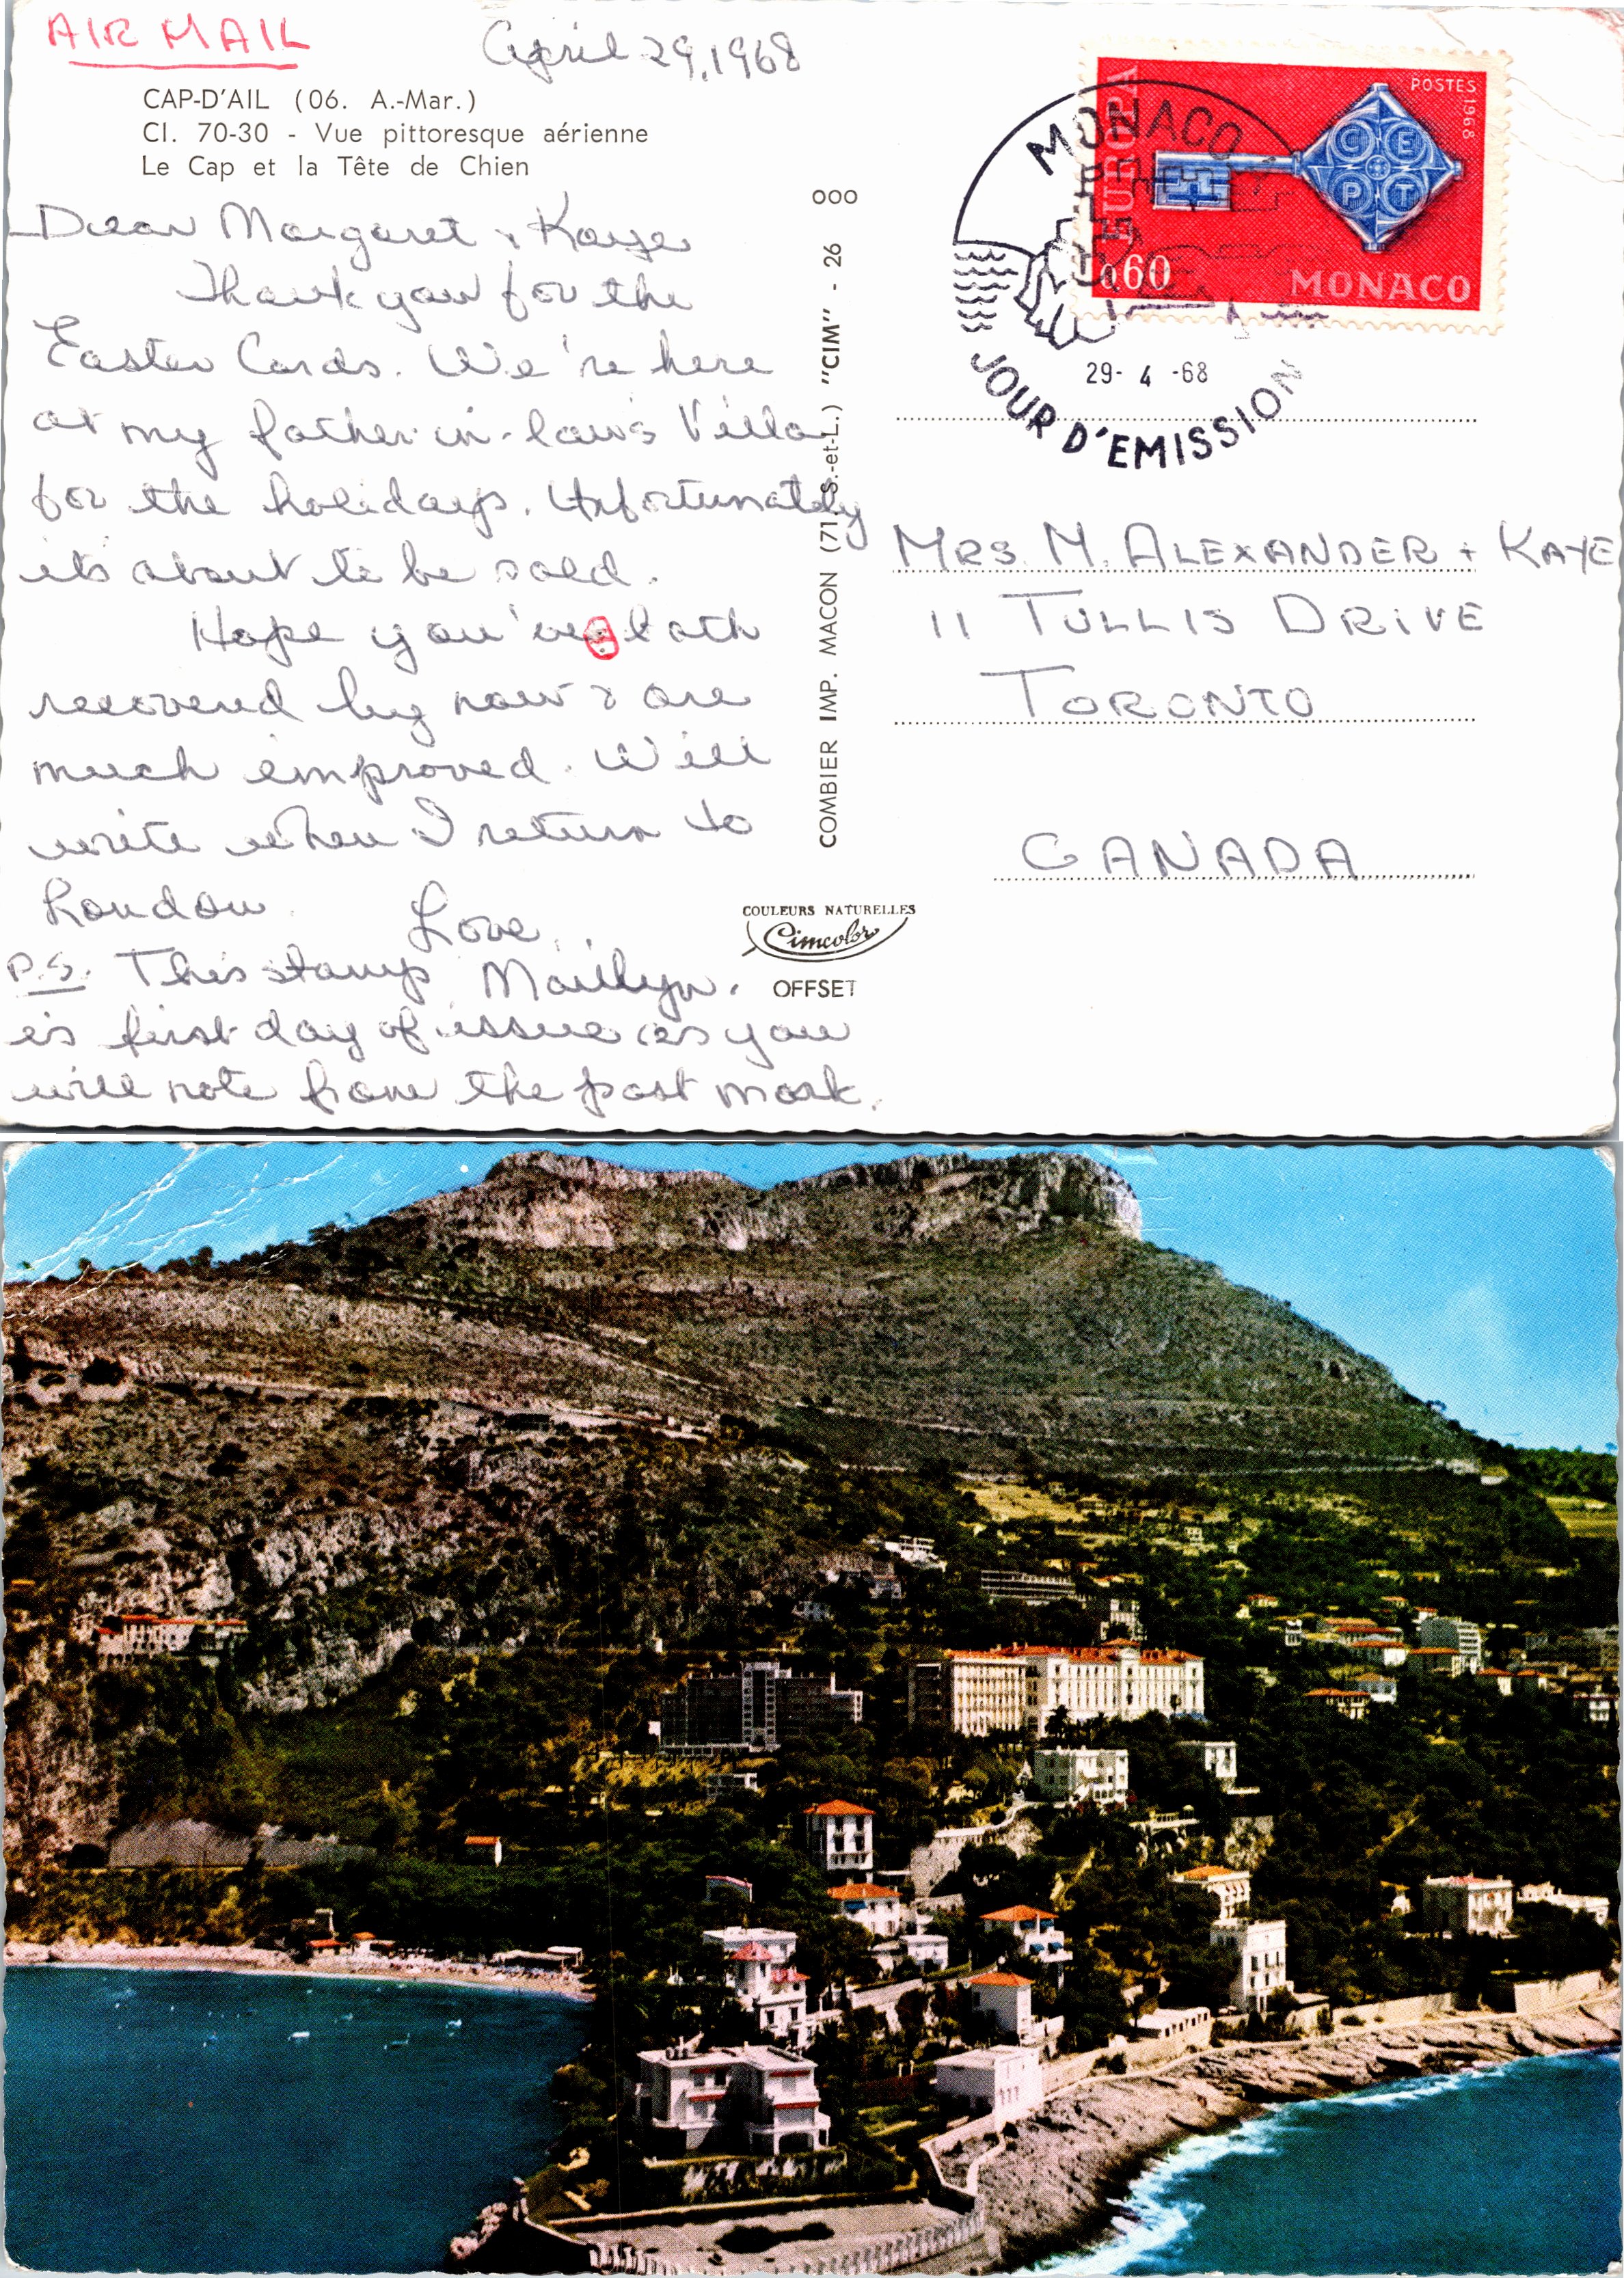 AIR MAIL
April 29, 1968
CAP-D'AIL (06. A.-Mar.)
CI. 70-30 - Vue pittoresque aérienne
Le Cap et la Tête de Chien
Dear Margaret & Kaye
Thank you for the
Easter Cards. We're here
at my father-in-law's Villa
for the holidays. Unfortunately
it's about to be sold.
Hope you've both
recovered by now & are
much improved. Will
write when I return to
London.
Love,
Marilyn.
P.S. This stamp
is first day of issue as you
will note from the post mark.
ooo
COMBIER IMP. MACON (71. S.-et-L.) "CIM" - 26
COULEURS NATURELLES
Cimcolor
OFFSET
EUROPA
POSTES 1968
C E
P T
0,60
MONACO
MONACO
29- 4 -68
JOUR D'EMISSION
MRS. M. ALEXANDER + KAYE
11 TULLIS DRIVE
TORONTO
CANADA